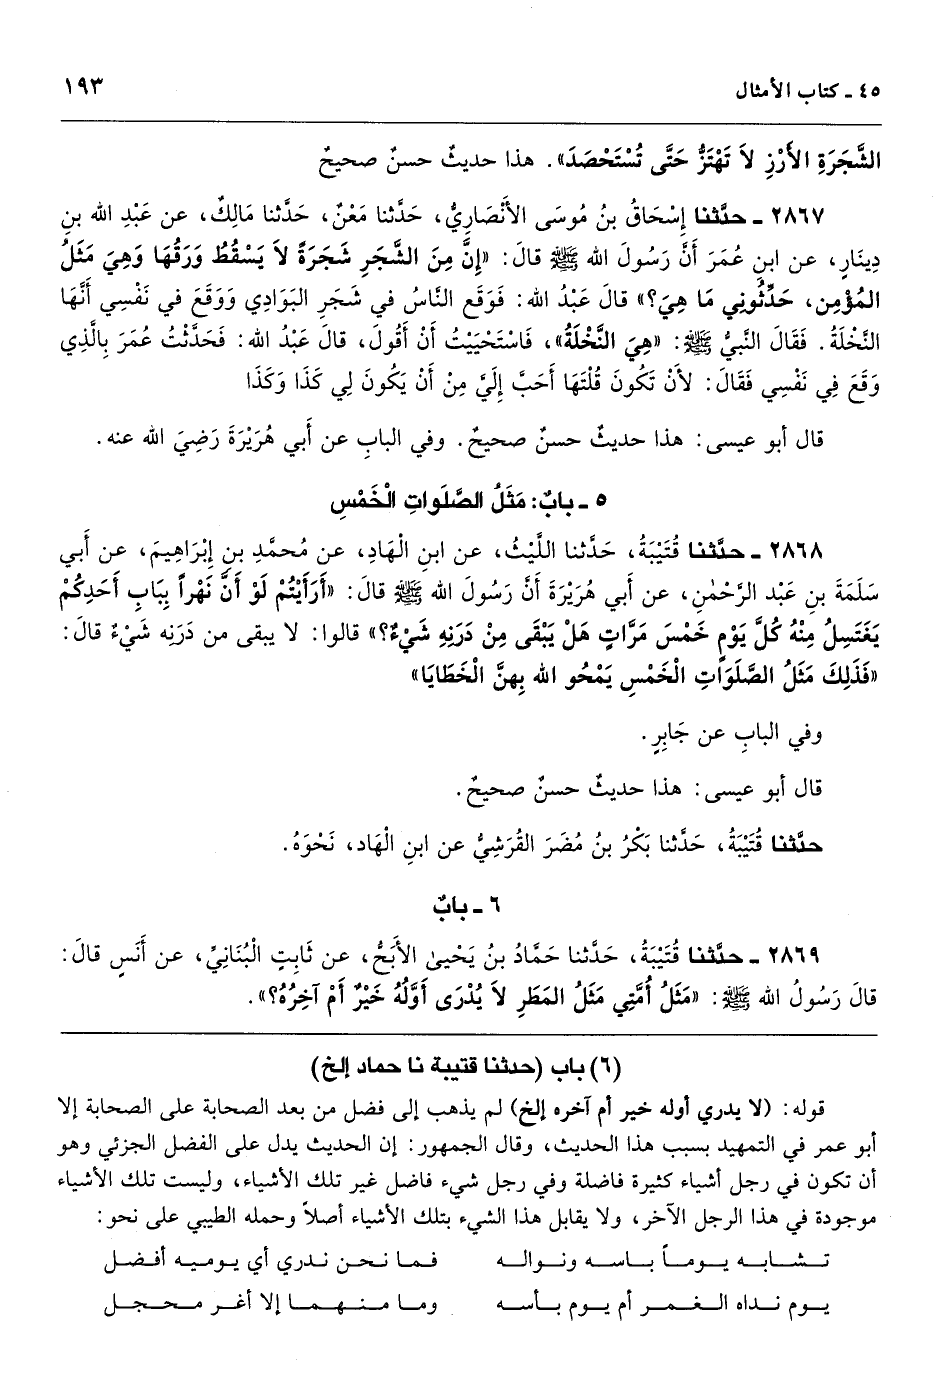 ٤٥ ـ كتاب الأمثال ١٩٣
الشَّجَرَةِ الأَرْزِ لاَ تَهْتَزُّ حَتَّى تُسْتَحْصَدَ». هذا حديثٌ حسنٌ صحيحٌ
٢٨٦٧ ـ حدَّثنا إِسْحَاقُ بنُ مُوسَى الأَنْصَارِيُّ، حَدَّثنا مَعْنٌ، حَدَّثنا مَالِكٌ، عن عَبْدِ الله بنِ
دِينَارٍ، عن ابنِ عُمَرَ أَنَّ رَسُولَ الله ﷺ قالَ: «إِنَّ مِنَ الشَّجَرِ شَجَرَةً لاَ يَسْقُطُ وَرَقُهَا وَهِيَ مَثَلُ
المُؤْمِنِ، حَدِّثُونِي مَا هِيَ؟» قالَ عَبْدُ الله: فَوَقَع النَّاسُ في شَجَرِ البَوَادِي وَوَقَعَ في نَفْسِي أَنَّهَا
النَّخْلَةُ. فَقَالَ النَّبيُّ ﷺ: «هِيَ النَّخْلَةُ»، فَاسْتَحْيَيْتُ أَنْ أَقُولَ، قالَ عَبْدُ الله: فَحَدَّثْتُ عُمَرَ بِالَّذِي
وَقَعَ فِي نَفْسِي فَقَالَ: لأَنْ تَكُونَ قُلْتَهَا أَحَبَّ إِلَيَّ مِنْ أَنْ يَكُونَ لِي كَذَا وَكَذَا
قال أبو عيسى: هذا حديثٌ حسنٌ صحيحٌ. وفي البابِ عن أبي هُرَيْرَةَ رَضِيَ الله عنه.
٥ ـ بابٌ: مَثَلُ الصَّلَواتِ الْخَمْسِ
٢٨٦٨ ـ حدَّثنا قُتَيْبَةُ، حَدَّثنا اللَّيْثُ، عن ابنِ الْهَادِ، عن مُحمَّدِ بنِ إِبْرَاهِيمَ، عن أَبي
سَلَمَةَ بنِ عَبْد الرَّحْمٰنِ، عن أبي هُرَيْرَةَ أَنَّ رَسُولَ الله ﷺ قالَ: «أَرَأَيْتُمْ لَوْ أَنَّ نَهْراً بِبَابِ أَحَدِكُمْ
يَغَتَسِلُ مِنْهُ كُلَّ يَوْمٍ خَمْسَ مَرَّاتٍ هَلْ يَبْقَى مِنْ دَرَنِهِ شَيْءٌ؟» قالوا: لا يبقى من دَرَنِه شَيْءٌ قالَ:
«فَذَلِكَ مَثَلُ الصَّلَوَاتِ الْخَمْسِ يَمْحُو الله بِهِنَّ الْخَطَايَا»
وفي البابِ عن جَابِرٍ.
قال أبو عيسى: هذا حديثٌ حسنٌ صحيحٌ.
حدَّثنا قُتَيْبَةُ، حَدَّثنا بَكْرُ بنُ مُضَرَ القُرَشِيُّ عن ابنِ الْهَاد، نَحْوَهُ.
٦ ـ بابٌ
٢٨٦٩ ـ حدَّثنا قُتَيْبَةُ، حَدَّثنا حَمَّادُ بنُ يَحْيىٰ الأَبَحُّ، عن ثَابِتٍ الْبُنَانِيِّ، عن أَنَسٍ قالَ:
قالَ رَسُولُ الله ﷺ: «مَثَلُ أُمَّتِي مَثَلُ المَطَرِ لاَ يُدْرَى أَوَّلُهُ خَيْرٌ أَمْ آخِرُهُ؟».
(٦) باب (حدثنا قتيبة نا حماد إلخ)
قوله: (لا يدري أوله خير أم آخره إلخ) لم يذهب إلى فضل من بعد الصحابة على الصحابة إلا
أبو عمر في التمهيد بسبب هذا الحديث، وقال الجمهور: إن الحديث يدل على الفضل الجزئي وهو
أن تكون في رجل أشياء كثيرة فاضلة وفي رجل شيء فاضل غير تلك الأشياء، وليست تلك الأشياء
موجودة في هذا الرجل الآخر، ولا يقابل هذا الشيء بتلك الأشياء أصلاً وحمله الطيبي على نحو:
تشابه يوماً باسه ونواله فما نحن ندري أي يوميه أفضل
يوم نداه الغمر أم يوم بأسه وما منهما إلا أغر محجل